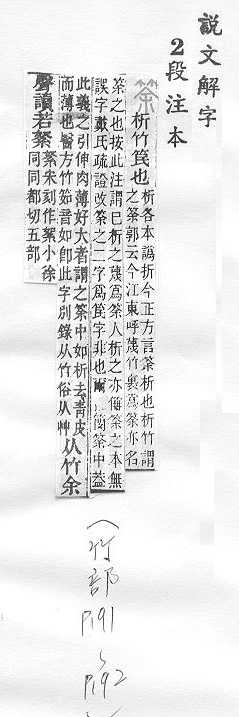 說文解字
2段注本
筡
析竹笢也
析各本譌折今正方言筡析也析竹謂
之筡郭云今江東呼蔑竹裏爲筡亦名
筡之也按此注謂已析之蔑爲筡人析之亦偁筡之本無
誤字戴氏疏證改筡之二字爲笢字非也爾簡筡中蓋
此義之引伸肉薄好大者謂之筡中如析去青皮
而薄也醫方竹筎音如卽此字別錄从竹俗从艸
从竹余
聲讀若絮
絮朱刻作絮小徐
同同都切五部
(竹部
P191
~
P192